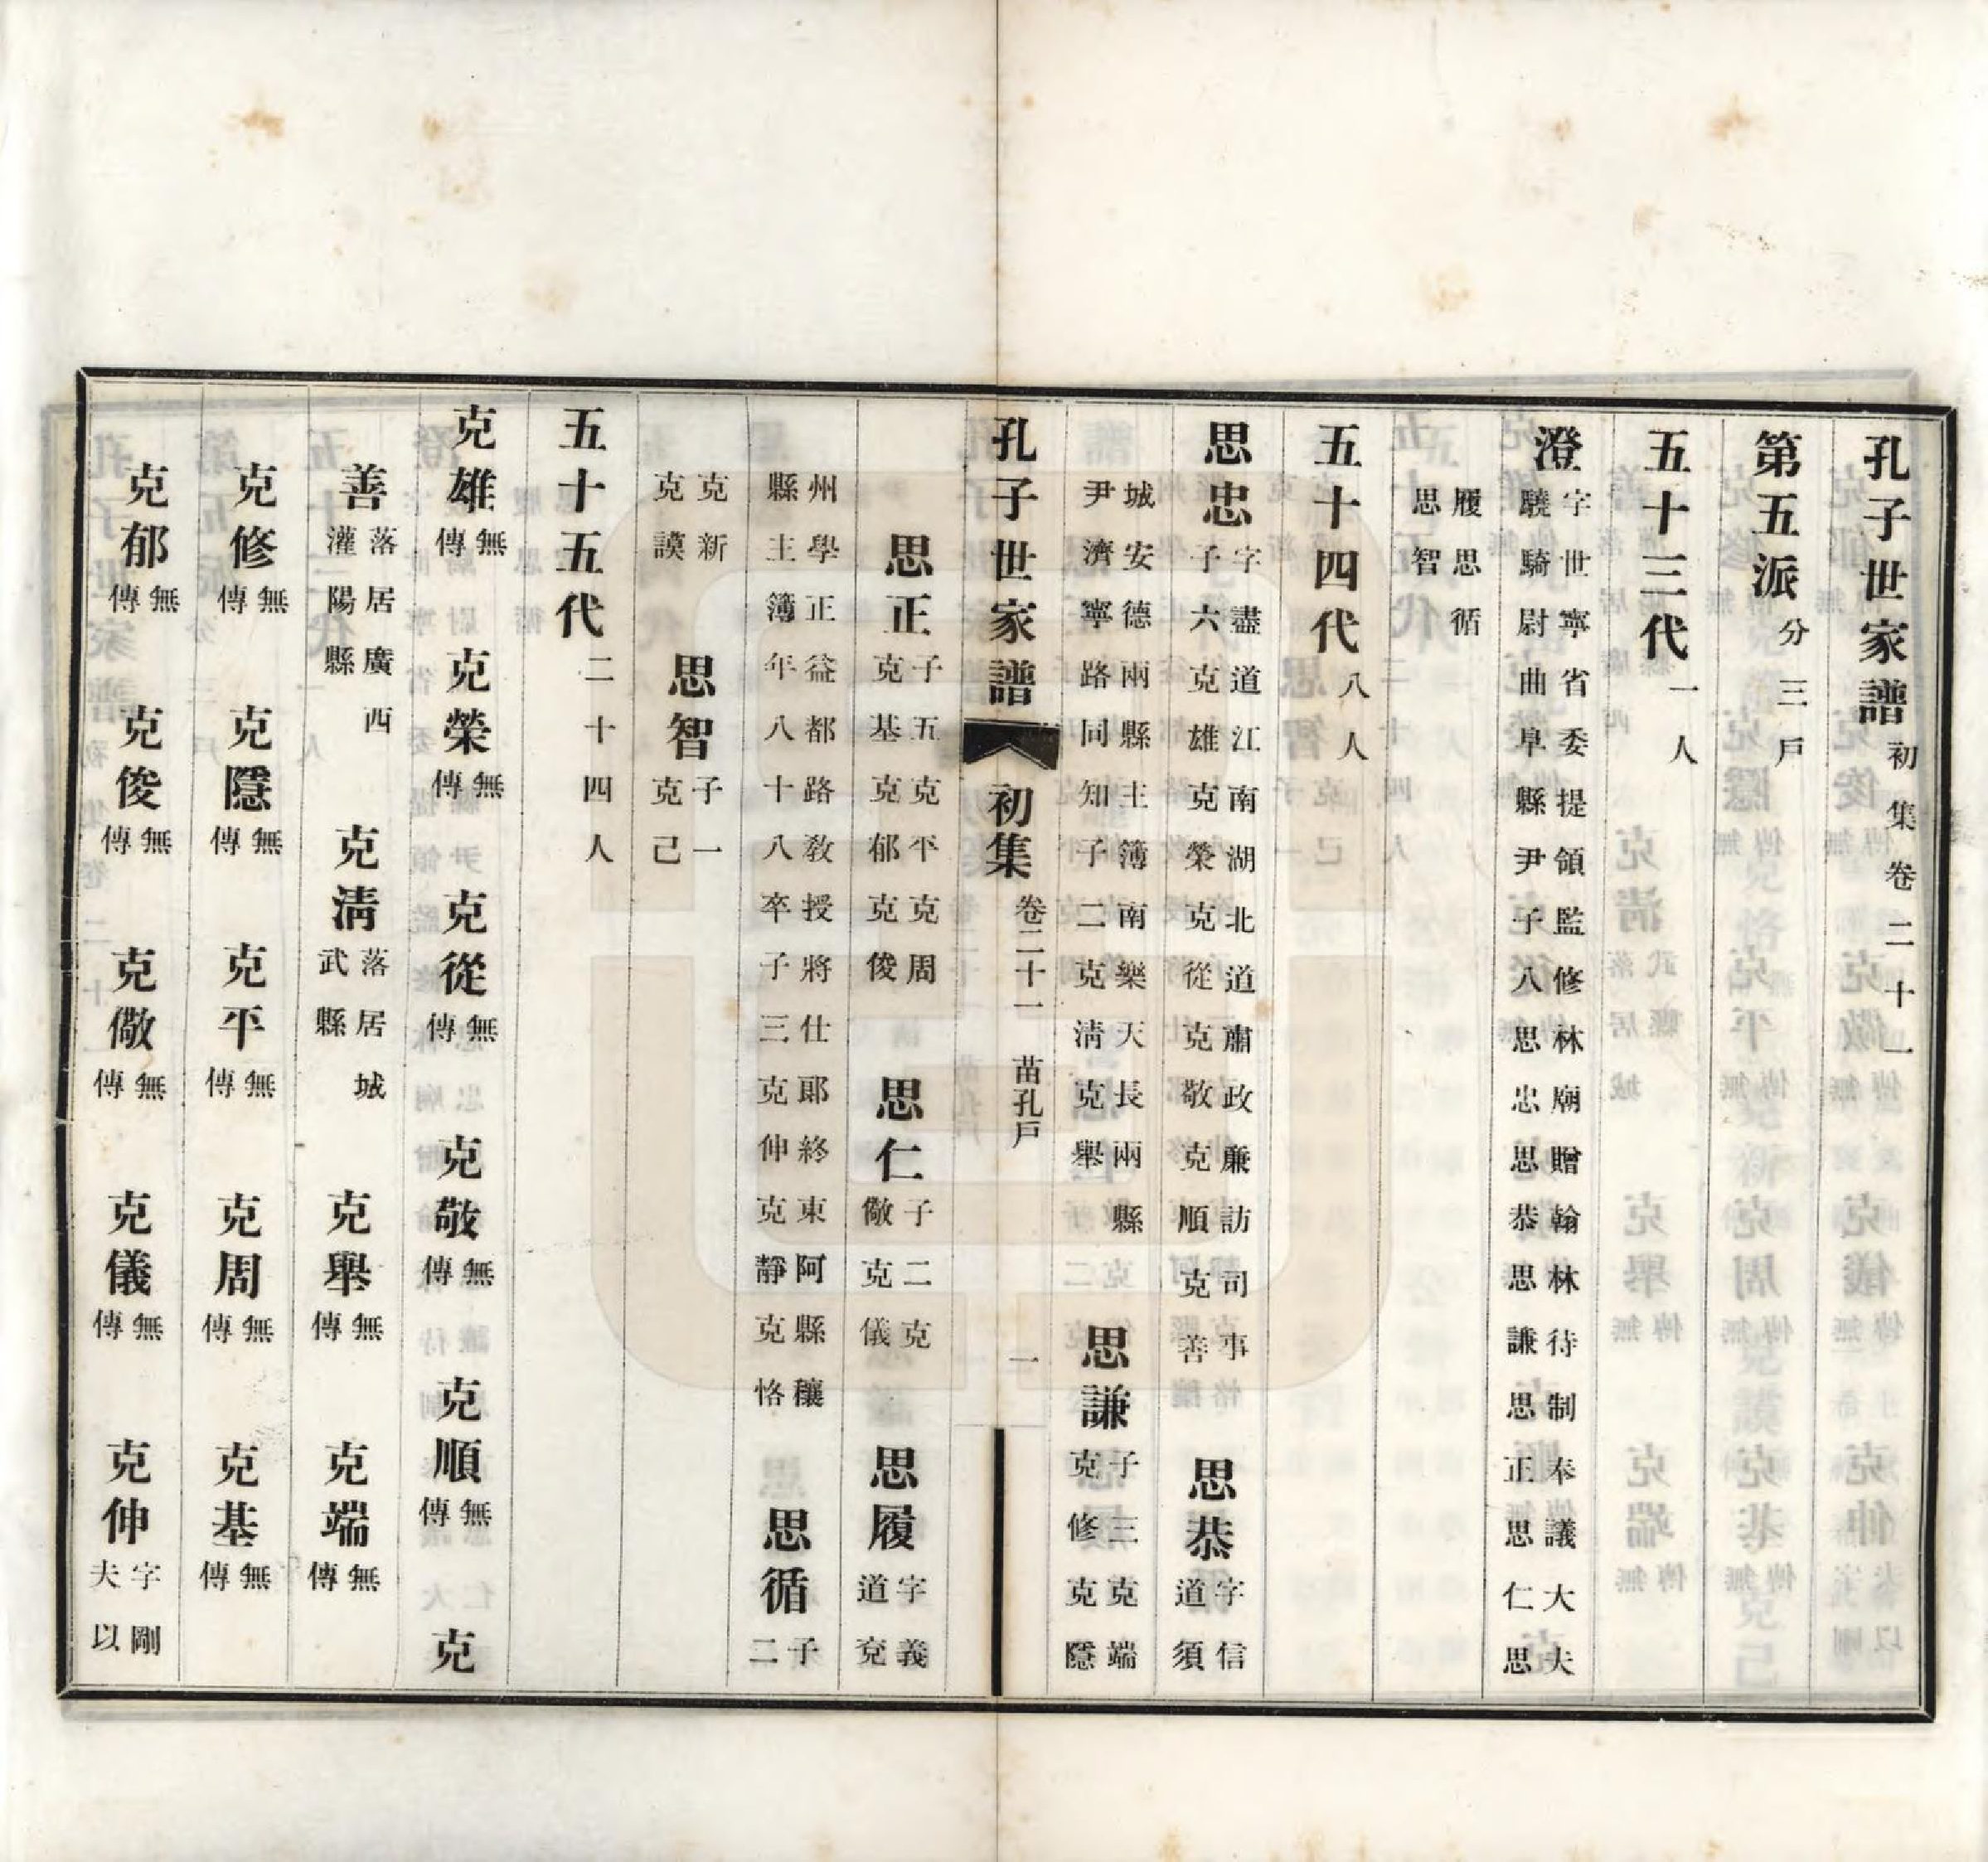 孔子世家譜初集卷二十一
第五派分三戶
五十三代一人
澄字世寧省委提領監修林廟贈翰林待制奉議大夫驍騎尉曲阜縣尹子八思忠思恭思謙思正思仁思
履思循思智
五十四代八人
思忠字盡道江南湖北道肅政廉訪司事子六克雄克榮克從克敬克順克善 思恭字信道須
城安德兩縣主簿南樂天長兩縣尹濟寧路同知子二克淸克舉 思謙子三克端克修克隱
孔子世家譜 初集 卷二十一 苗孔戶 一
思正子五克平克周克基克郁克俊 思仁子二克儆克儀 思履字義道兗
州學正益都路敎授將仕郞終東阿縣穰縣主簿年八十八卒子三克伸克靜克恪 思循子二
克新克謨 思智子一克己
五十五代二十四人
克雄無傳 克榮無傳 克從無傳 克敬無傳 克順無傳 克
善落居廣西灌陽縣 克淸落居城武縣 克舉無傳 克端無傳
克修無傳 克隱無傳 克平無傳 克周無傳 克基無傳
克郁無傳 克俊無傳 克儆無傳 克儀無傳 克伸字剛夫以